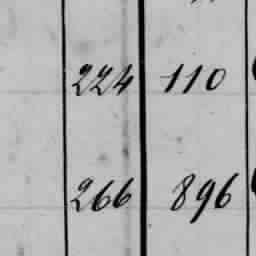 224 110
266 896